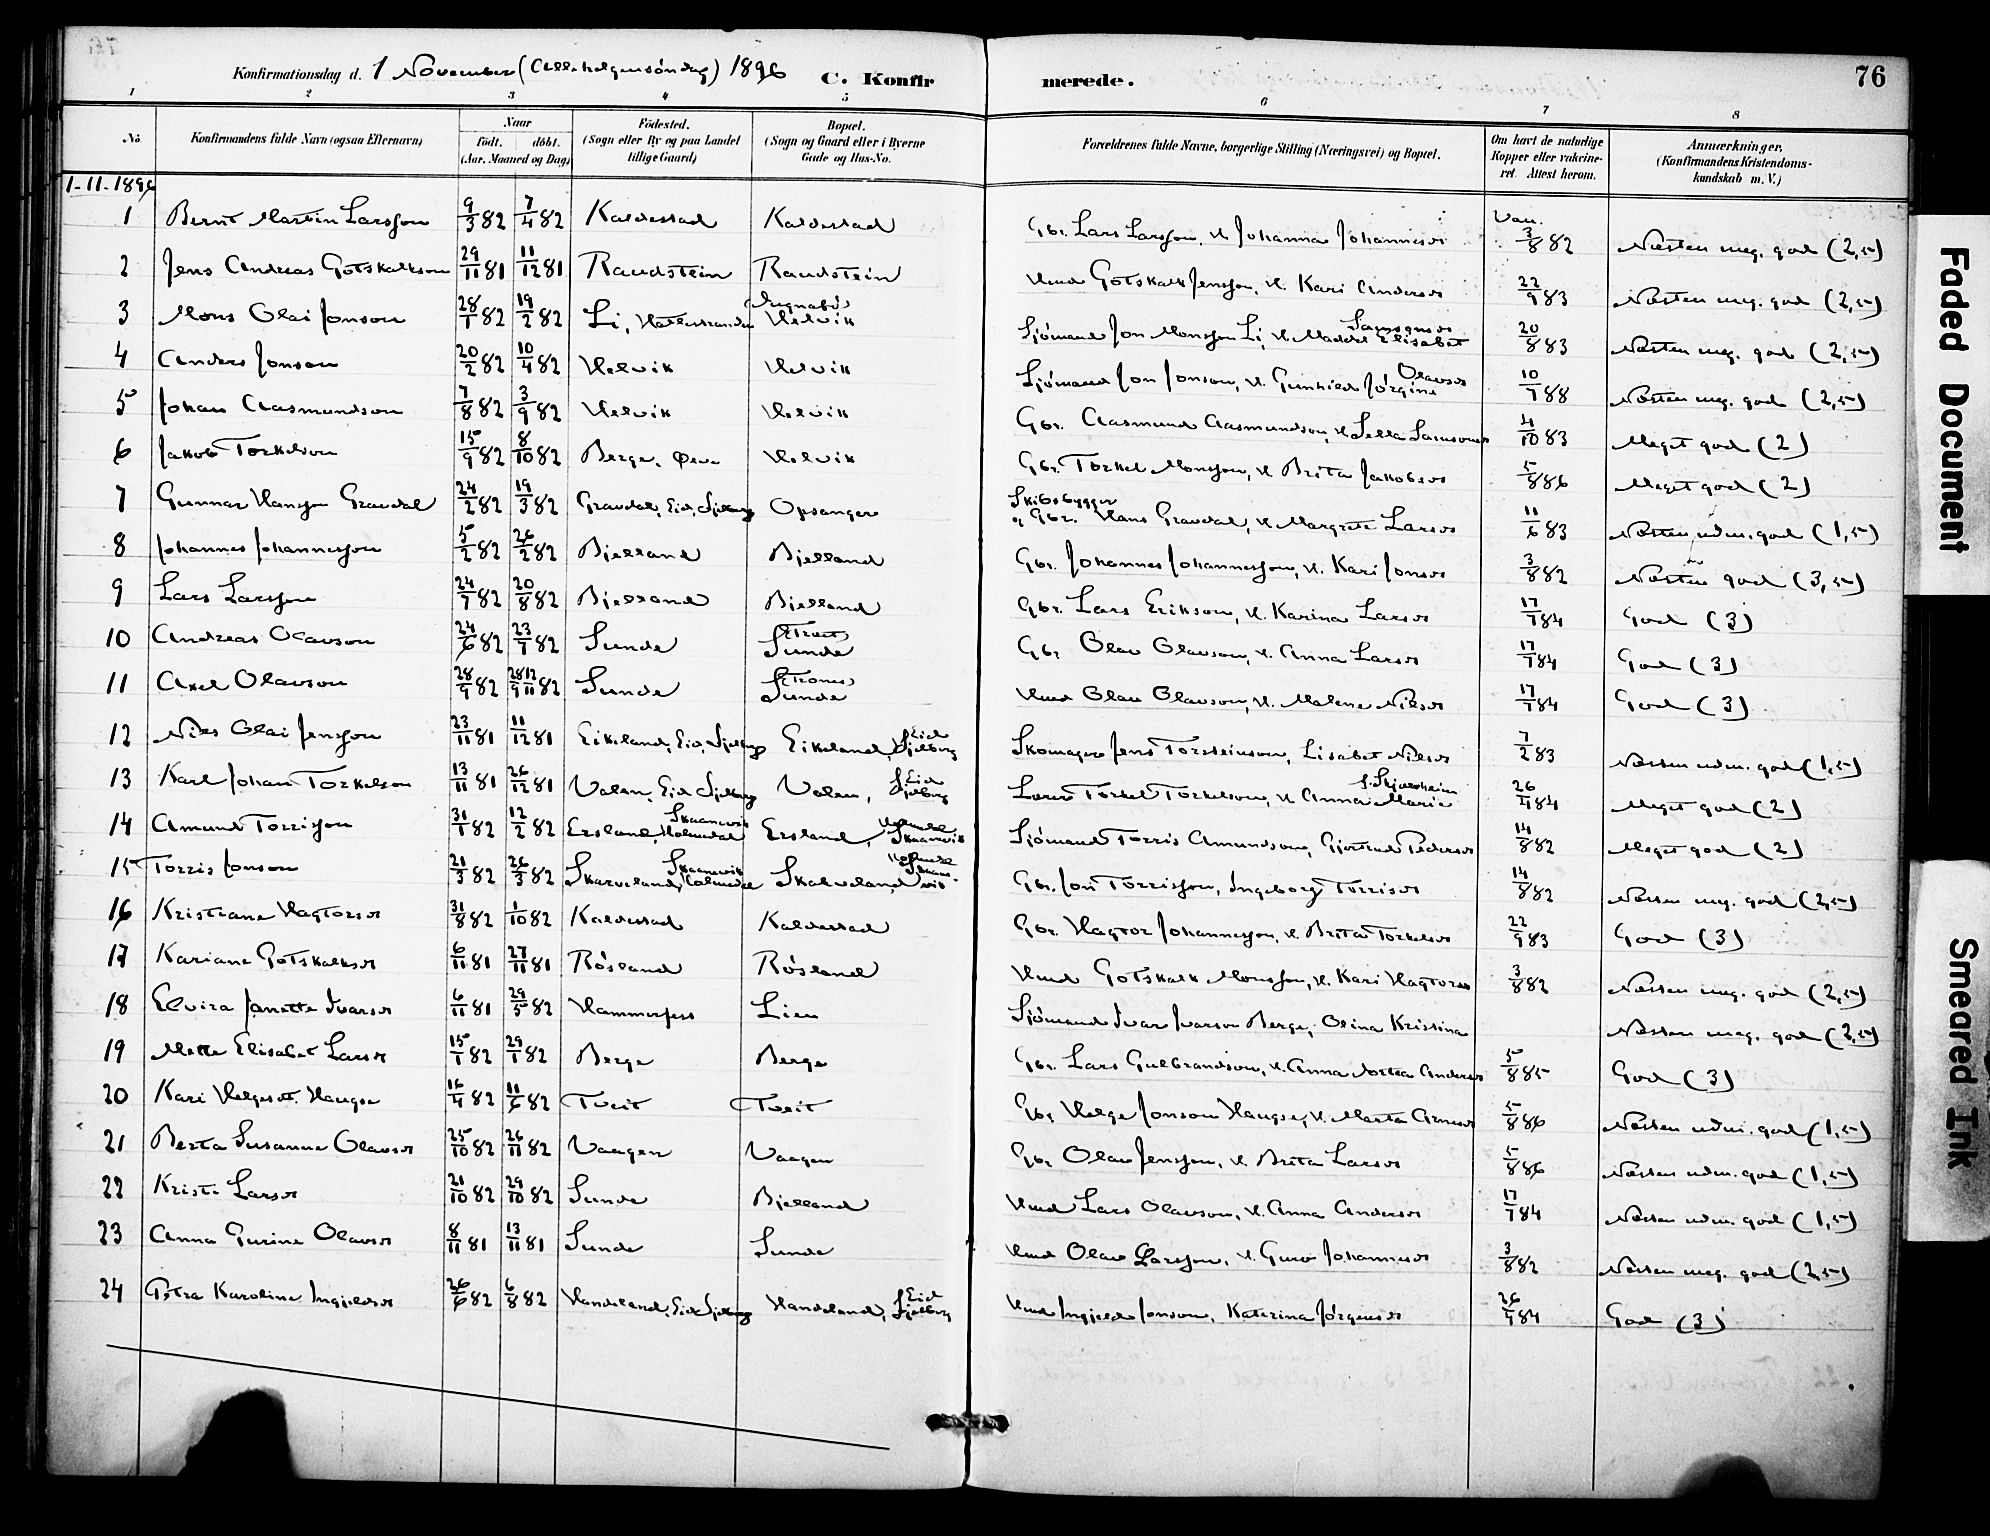 76
Konfirmationsdag d. 1 November (Allehelgensöndag) 1896 C. Konfirmerede.
1 2 3 4 5 6 7 8
No. Konfirmandens fulde Navn (ogsaa Efternavn) Naar födt. döbt. (Aar, Maaned og Dag) Födested. (Sogn eller By og paa Landet tillige Gaard) Bopæl. (Sogn og Gaard eller i Byerne Gade og Hus-No. Forældrenes fulde Navne, borgerlige Stilling (Næringsvei) og Bopæl. Om havt de naturlige Kopper eller vakcineret. Attest herom. Anmærkninger. (Konfirmandens Kristendomskundskab m. V.)
1-11-1896
1 Bernt Martin Larsson 9/3 82 7/4 82 Kaldestad Kaldestad Gbr. Lars Larsson, H. Johanna Johannesd. Vac. 3/8 82 Næsten meg. god (2,5)
2 Jens Andreas Gotskalkson 29/11 81 11/12 81 Raudstein Raudstein Hmd Gotskalk Jensson, H. Kari Andersd. 22/9 83 Næsten meg. god (2,5)
3 Mons Olai Jonson 28/1 82 19/2 82 Li, Helvik Sjömand Jon Monsson Li, H. Elisabet 20/8 83 Næsten meg. god (2,5)
4 Anders Jonson 20/2 82 10/4 82 Helvik Helvik Sjömand Jon Jonson, H. Gunhild Jørgine Olavsd. 10/7 88 Næsten meg. god (2,5)
5 Johan Aasmundson 7/8 82 3/9 82 Helvik Helvik Gbr. Aasmund Aasmundson, H. Sella Samsonsd. 4/10 83 Meget god (2)
6 Jakob Torkelson 15/9 82 8/10 82 Berge, Helvik Gbr. Torkel Monsson, H. Brita Jakobsd. 5/8 86 Meget god (2)
7 Gunnar Hansson Gravdal 24/2 82 19/3 82 Gravdal, Eid, Fjelberg Opsanger Skibsbygger og Gbr. Hans Gravdal, H. Margrete Larsd. 11/6 83 Næsten udm. god (1,5)
8 Johannes Johannesson 5/2 82 26/2 82 Bjelland Bjelland Gbr. Johannes Johannesson, H. Kari Jonsd. 3/8 82 Næsten god (3,5)
9 Lars Larsson 24/7 82 20/8 82 Bjelland Bjelland Gbr. Lars Erikson, H. Karina Larsd. 17/7 84 God (3)
10 Andreas Olavson 24/6 82 23/7 82 Sunde Sunde Gbr. Olav Olavson, H. Anna Larsd. 17/7 84 God (3)
11 Axel Olavson 28/9 82 28/9 12/11 82 Sunde Sunde Hmd Olav Olavson, H. Malene Nilsd. 17/7 84 God (3)
12 Nils Olai Jensson 23/11 81 11/12 81 Eikeland, Eid, Fjelberg Eikeland, Eid Fjelberg Skomager Jens Torsteinson, Lisabet Nilsd. 7/2 83 Næsten udm. god (1,5)
13 Karl Johan Torkelson 13/11 81 26/12 81 Valen, Eid Fjelberg Valen, Eid Fjelberg Torkel Torkelson, H. Anna Marie f. Skjelsheim 26/4 84 Meget god (2)
14 Amund Torrisson 31/1 82 12/2 82 Ersland, Holmedal Skaanevik Ersland, Holmedal Skaanevik Sjömand Torris Amundson, Gjertrud Pedersd. 14/8 82 Meget god (2)
15 Torris Jonson 21/3 82 26/3 82 Skarveland, Holmedal Skaanevik Skalveland, Holmedal Skaanevik Gbr. Jon Torrisson, Ingeborg Torrisd. 14/8 82 Næsten meg. god (2,5)
16 Kristiane Hagtorsd. 31/8 82 1/10 82 Kaldestad Kaldestad Gbr. Hagtor Johannesson, H. Brita Torkelsd. 22/9 83 God (3)
17 Kariane Gotskalksd. 6/11 81 27/11 81 Røsland Røsland Hmd Gotskalk Monsson, H. Kari Hagtorsd. 3/8 82 Næsten meg. god (2,5)
18 Elvira Janette Ivarsd. 6/11 81 29/5 82 Hammerfest Lien Sjömand Ivar Ivarson Berge, Olina Kristina Næsten meg. god (2,5)
19 Mette Elisabet Larsd. 15/1 82 29/1 82 Berge Berge Gbr. Lars Gulbrandson, H. Anna Andersd. 5/8 85 God (3)
20 Kari Helgesdt. Hauge 16/4 82 11/6 82 Tveit Tveit Gbr. Helge Jonson Hauge, H. Marta 5/8 86 Næsten udm. god (1,5)
21 Berta Susanna Olavsd. 25/10 82 26/11 82 Vaagen Vaagen Gbr. Olav Jensson, H. Brita Larsd. 5/8 86 Næsten udm. god (1,5)
22 Kristi Larsd. 21/10 82 29/10 82 Sunde Bjelland Hmd Lars Olavson, H. Anna Andersd. 17/7 84 Næsten udm. god (1,5)
23 Anna Gurine Olavsd. 8/11 81 13/11 81 Sunde Sunde Hmd Olav Larsson, H. Guro Johannesd. 3/8 82 Næsten meg. god (2,5)
24 Petra Karoline Ingjeldsd. 26/6 82 6/8 82 Handeland, Eid Fjelberg Handeland, Eid Fjelberg Hmd Ingjeld Jonson, Katerina Jørgensd. 26/4 84 God (3)
Faded Document
Smeared Ink